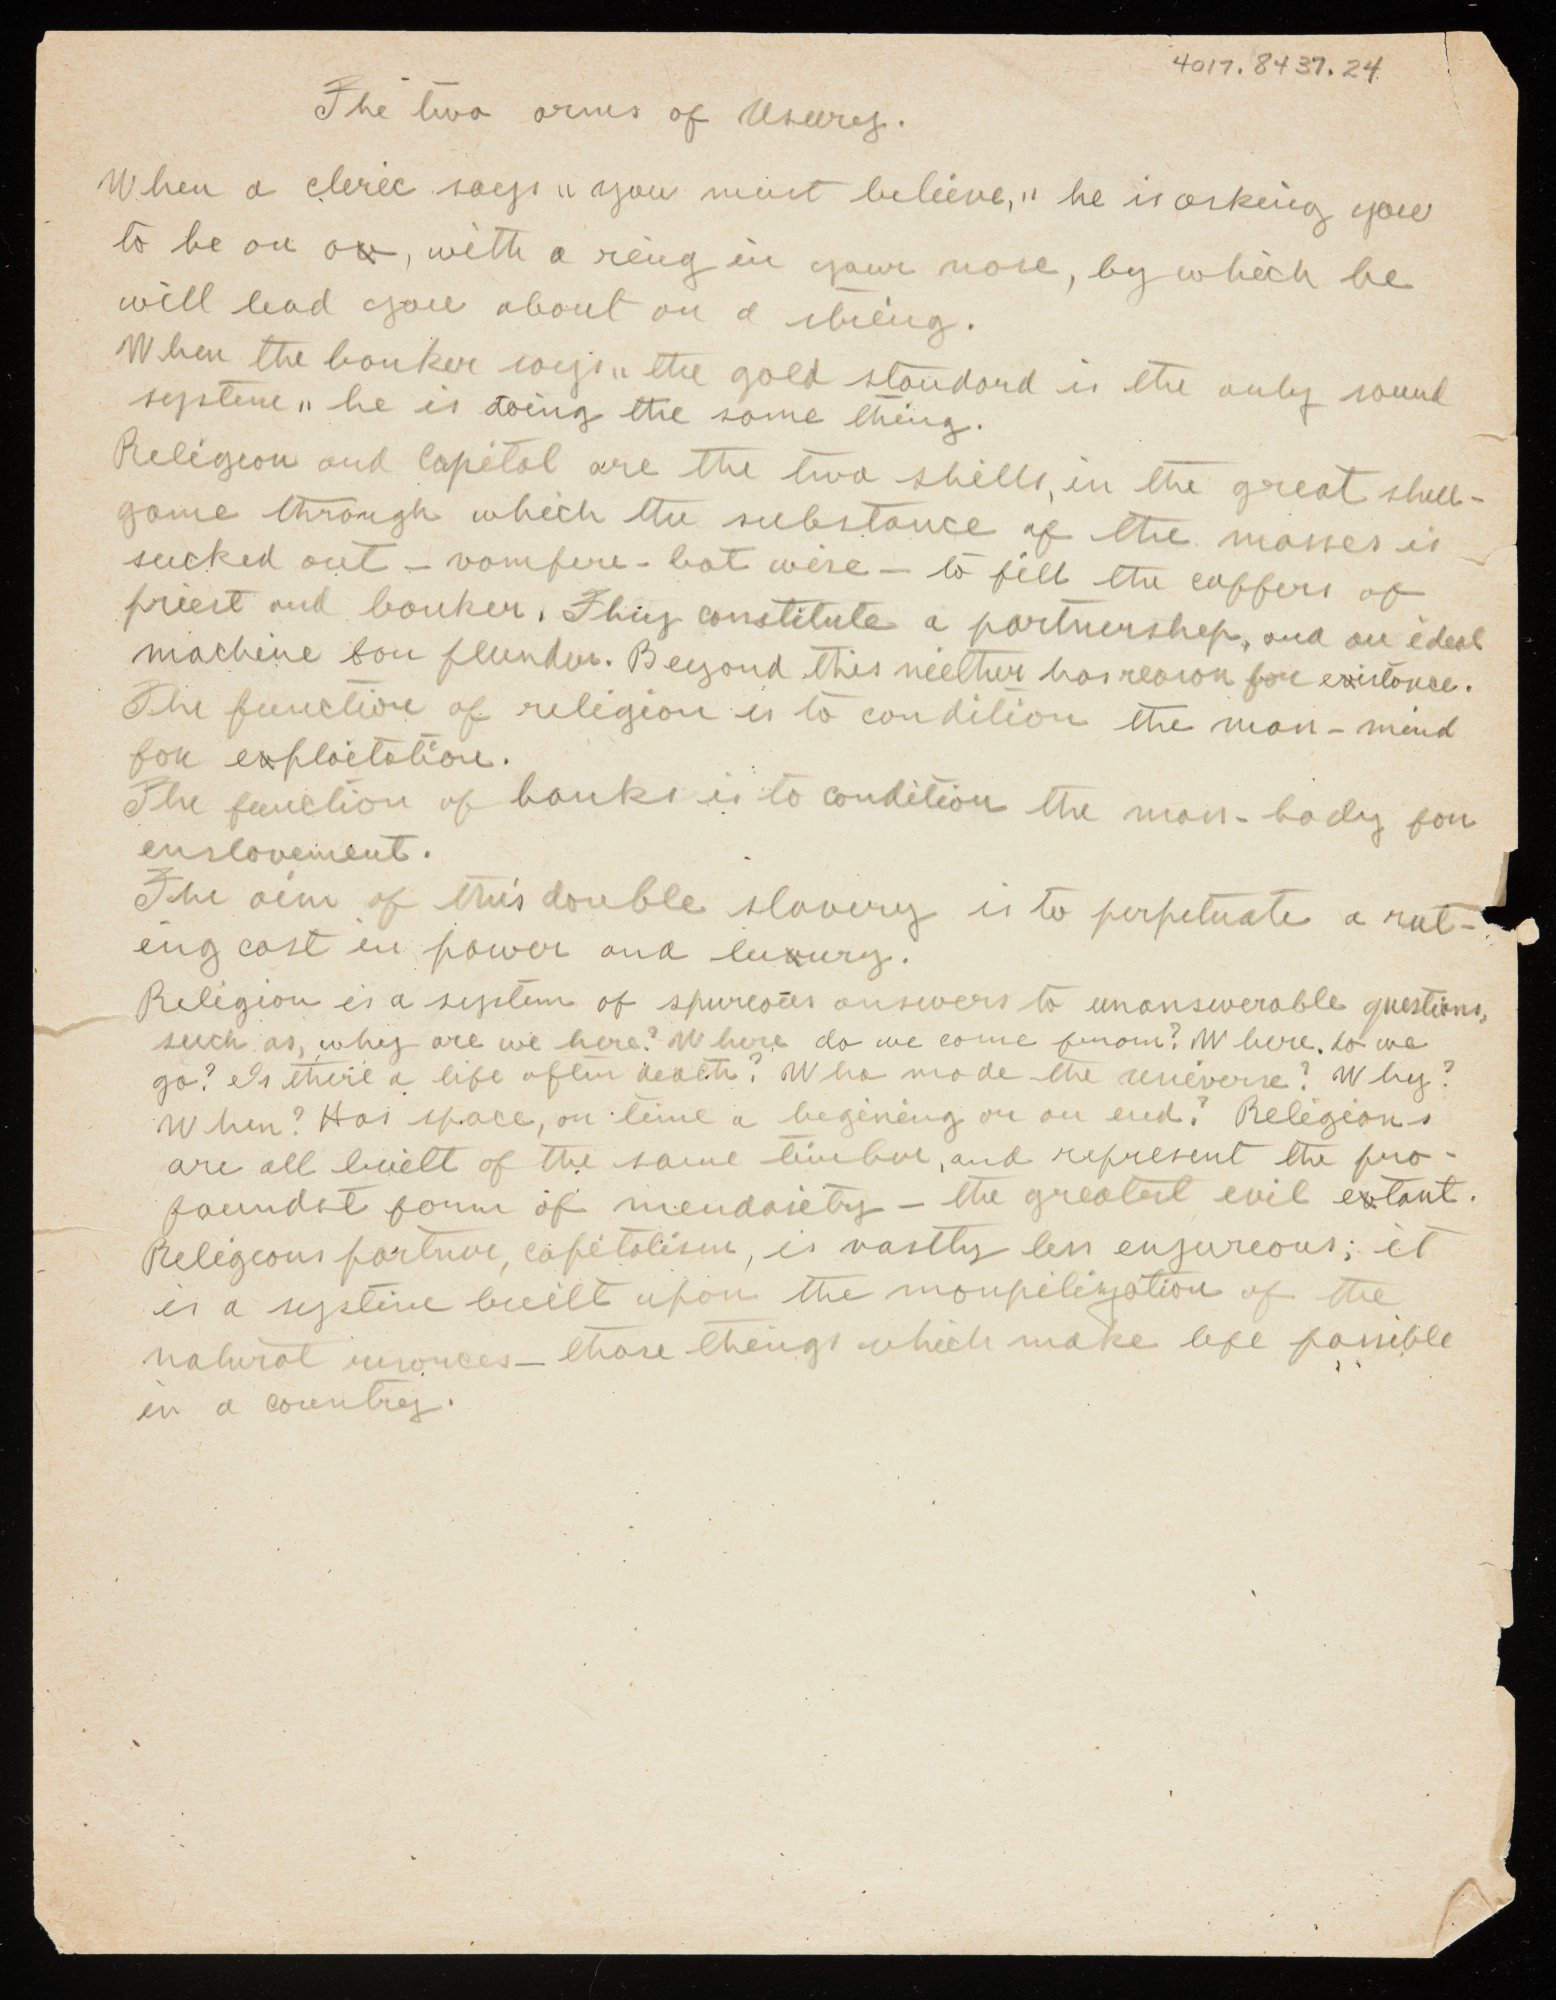 4017.8437.24
The two arms of Usury.
When a cleric says "you must believe," he is asking you
to be an ox, with a ring in your nose, by which he
will lead you about on a string.
When the banker says "the gold standard is the only sound
system" he is doing the same thing.
Religion and Capital are the two shells, in the great shell-
game through which the substance of the masses is
sucked out - vampire - bat wise - to fill the coffers of
priest and banker. They constitute a partnership, and an ideal
machine for plunder. Beyond this niether has reason for existance.
The function of religion is to condition the man-mind
for exploitation.
The function of banks is to condition the man-body for
enslavement.
The aim of this double slavery is to perpetuate a rul-
ing cast in power and luxury.
Religion is a system of spureous answers to unanswerable questions,
such as, why are we here? Where do we come from? Where do we
go? Is there a life after death? Who made the universe? Why?
When? Has space, or time a begining or an end? Religions
are all built of the same timber, and represent the pro-
foundst form of mendasity - the greatest evil extant.
Religions partner, capitalism, is vastly less enjureous; it
is a system built upon the monpilization of the
natural resorces - those things which make life possible
in a country.